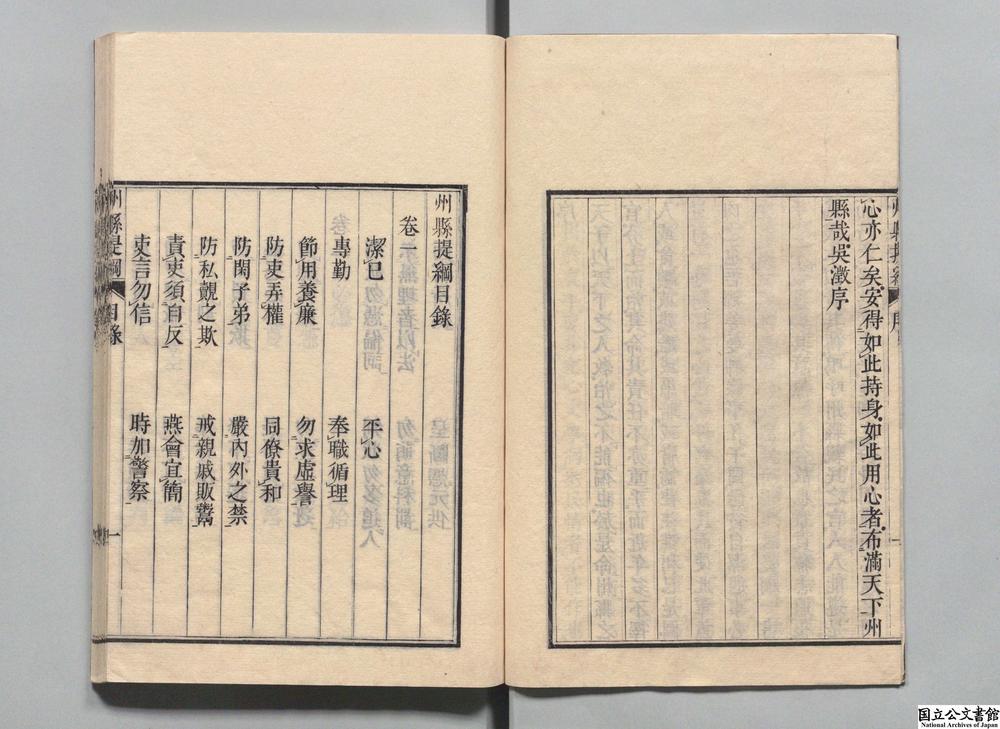 心亦仁矣安得如此持身如此用心者布滿天下州
縣哉吳澂序
州縣提綱目錄
卷一
潔己 平心
專勤 奉職循理
節用養廉 勿求虛譽
防吏弄權 同僚貴和
防閑子弟 嚴內外之禁
防私覿之欺 戒親戚販鬻
責吏須自反 燕會宜簡
吏言勿信 時加警察
州縣提綱 目錄 一
国立公文書館
National Archives of Japan